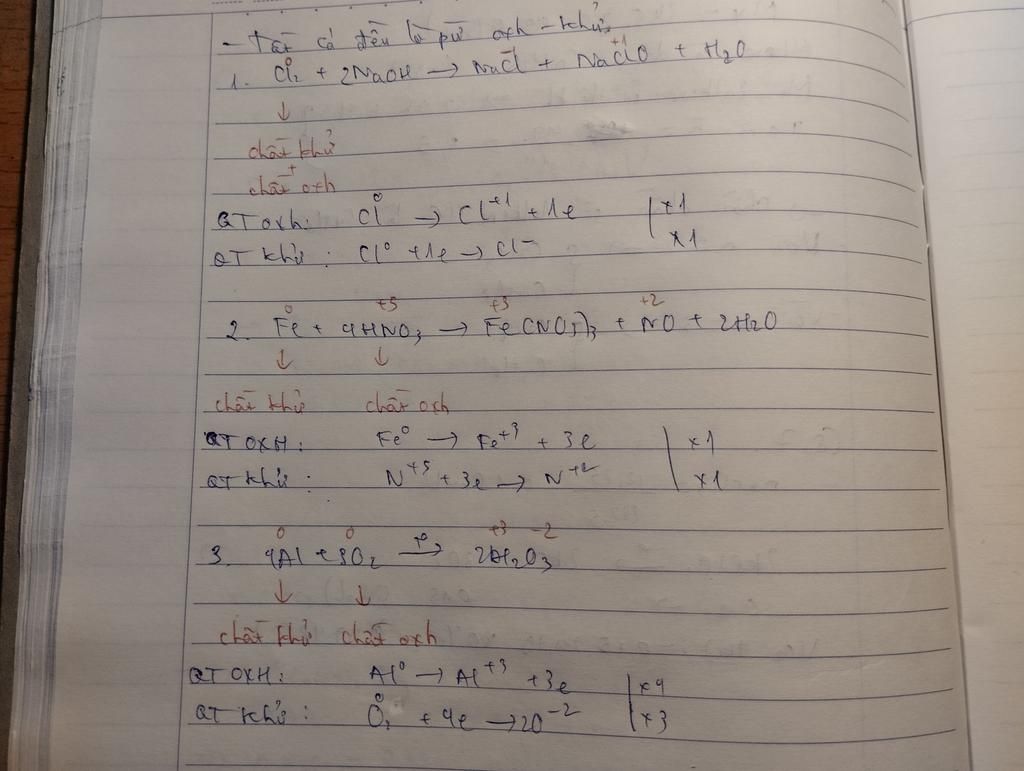 - Tất cả đều là pứ oxh - khử
1. Cl₂⁰ + 2NaOH → NaCl⁻ + NaCl⁺¹O + H₂O
↓
chất khử
+
chất oxh
QT oxh: Cl⁰ → Cl⁺¹ + 1e | x1
QT khử: Cl⁰ + 1e → Cl⁻ | x1
0 +5 +3 +2
2. Fe + 4HNO₃ → Fe(NO₃)₃ + NO + 2H₂O
↓ ↓
chất khử chất oxh
QT OXH: Fe⁰ → Fe⁺³ + 3e | x1
QT khử: N⁺⁵ + 3e → N⁺² | x1
0 0 +3 -2
3. 4Al + 3O₂ →(t⁰) 2Al₂O₃
↓ ↓
chất khử chất oxh
QT OXH: Al⁰ → Al⁺³ + 3e | x4
QT khử: O₂⁰ + 4e → 2O⁻² | x3